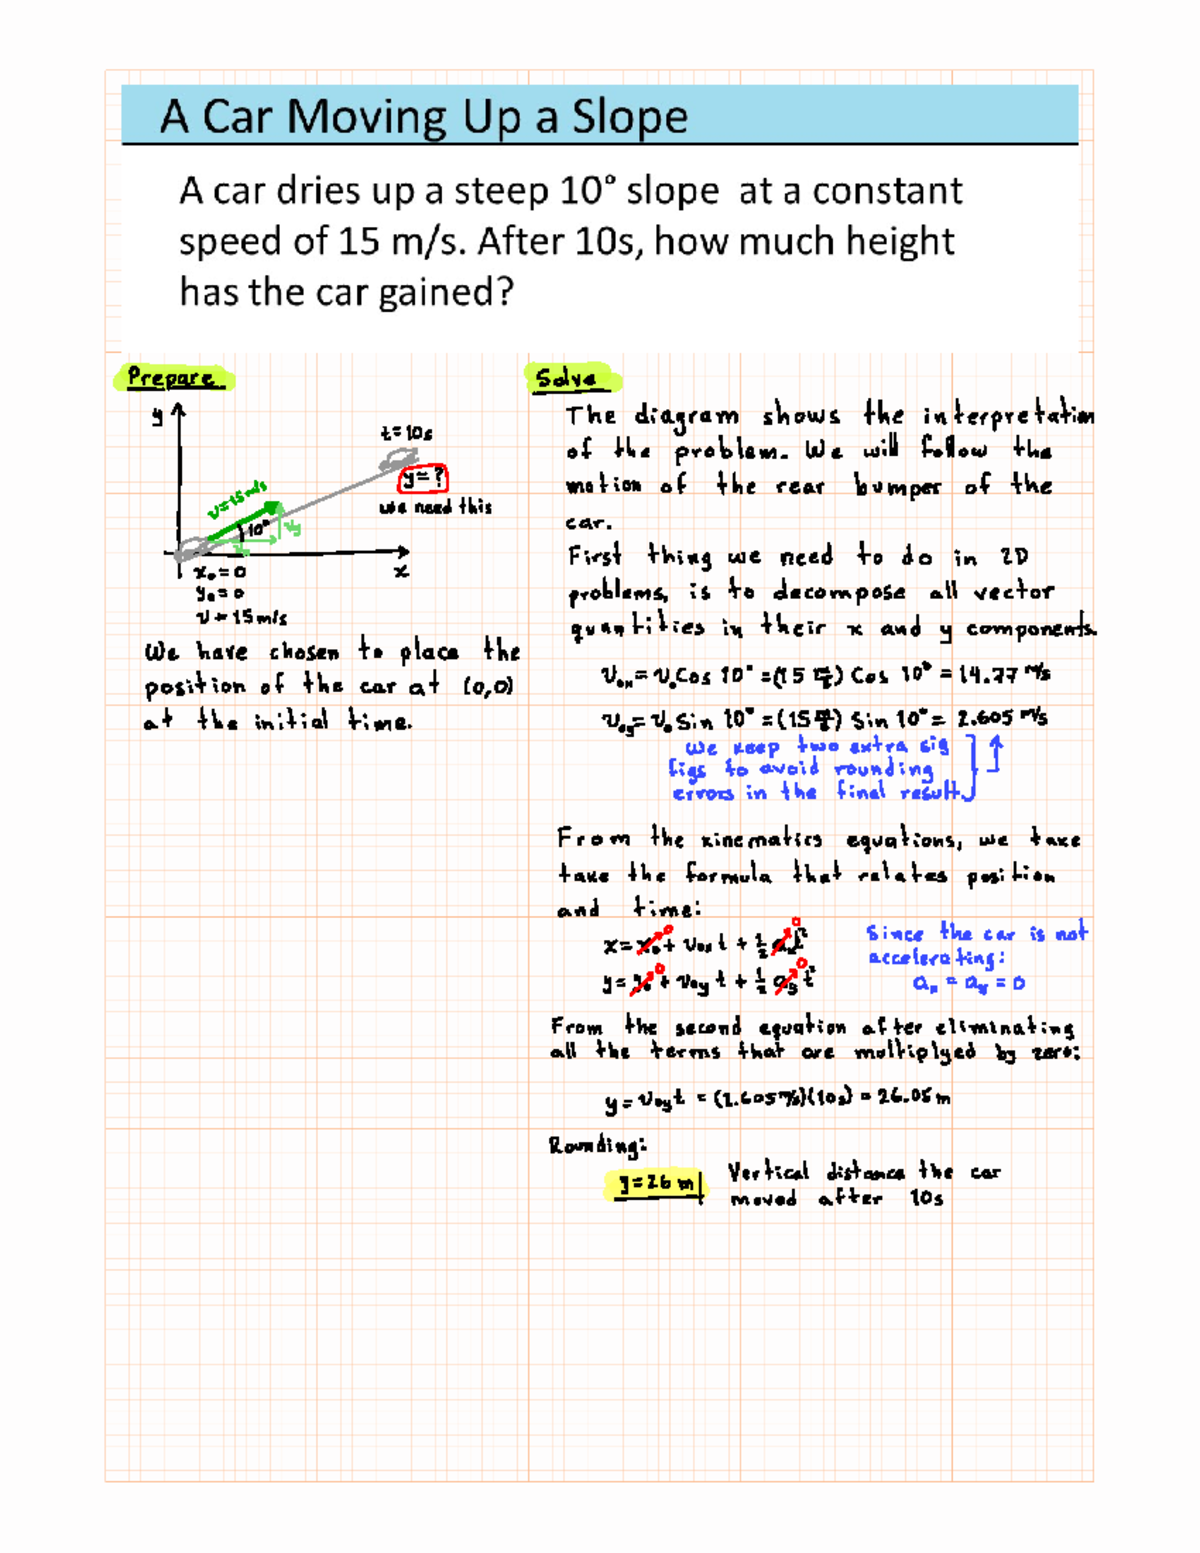 A Car Moving Up a Slope
A car dries up a steep 10° slope at a constant
speed of 15 m/s. After 10s, how much height
has the car gained?
Prepare
y
t=10s
y=?
we need this
v=15m/s
10°
vy
vx
x₀=0
x
y₀=0
v=15m/s
We have chosen to place the
position of the car at (0,0)
at the initial time.
Solve
The diagram shows the interpretation
of the problem. We will follow the
motion of the rear bumper of the
car.
First thing we need to do in 2D
problems, is to decompose all vector
quantities in their x and y components.
v₀ₓ=v₀Cos 10°=(15 m/s) Cos 10°=14.77 m/s
v₀y=v₀ Sin 10°=(15 m/s) Sin 10°= 2.605 m/s
we keep two extra sig
figs to avoid rounding
errors in the final result.
From the kinematics equations, we take
take the formula that relates position
and time:
x=x₀+v₀ₓt+½aₓt²
0 0
y=y₀+v₀yt+½ayt²
0 0
Since the car is not
accelerating:
aₓ=ay=0
From the second equation after eliminating
all the terms that are multiplyed by zero:
y=v₀yt=(2.605m/s)(10s)=26.05m
Rounding:
y=26 m
Vertical distance the car
moved after 10s